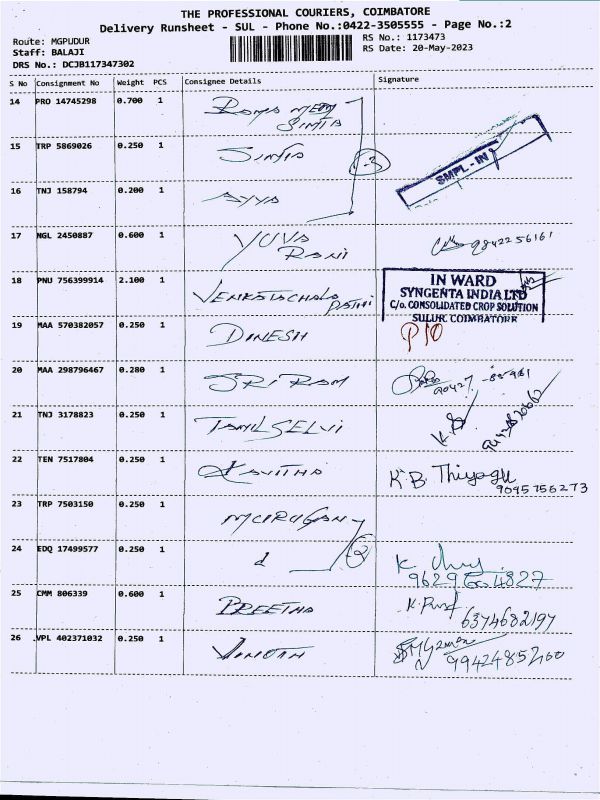 THE PROFESSIONAL COURIERS, COIMBATORE
Delivery Runsheet - SUL - Phone No.:0422-3505555 - Page No.:2
Route: MGPUDUR
RS No.: 1173473
Staff: BALAJI
RS Date: 20-May-2023
DRS No.: DCJB117347302
S No Consignment No Weight PCS Consignee Details Signature
14 PRO 14745298 0.700 1
15 TRP 5869026 0.250 1
SMPL-IN
16 TNJ 158794 0.200 1 AYYA
17 NGL 2450887 0.600 1 YUVA
RANI
9842256161
18 PNU 756399914 2.100 1 VENKATACHALA
PATHI
IN WARD
SYNGENTA INDIA LTD
C/o. CONSOLIDATED CROP SOLUTION
SULUR, COIMBATORE
19 MAA 570382057 0.250 1 DINESH
20 MAA 298796467 0.280 1 SRI RAM
21 TNJ 3178823 0.250 1 TAMILSELVI
22 TEN 7517804 0.250 1 KAVITHA K.B. Thiyagu
9095756273
23 TRP 7503150 0.250 1 MURUGAN
24 EDQ 17499577 0.250 1
25 CMM 806339 0.600 1 PREETHA
6374682197
26 VPL 402371032 0.250 1 VINOTH